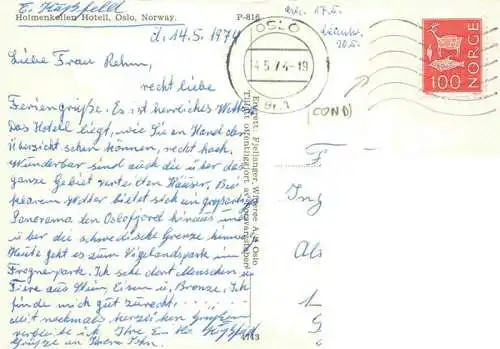 E. Hugsfeld
Holmenkollen Hotell, Oslo, Norway.
P-816
d. 14.5.1974
Liebe Frau Rehm,
recht liebe
Feriengrüße. Es ist herrliches Wetter.
Das Hotell liegt, wie Sie an Hand der
Übersicht sehen können, recht hoch.
Wunderbar sind auch die über das
ganze Gebiet verteilten Häuser. Bei
klarem Wetter bietet sich ein großartiges
Panorama den Oslofjord hinaus und
über die schwedische Grenze hinweg
Heute geht es zum Vigelandspark im
Frognerpark. Ich sehe dort Menschen u.
Tiere aus Stein, Eisen u. Bronze. Ich
finde mich gut zurecht.
Mit nochmals herzlichen Grüßen
verbleibe ich Ihre
Grüße an Ihren Sohn.
Enerett: Fjellanger, Widerøe A/S, Oslo
1143
OSLO
14.5.74-19
BR.1
17.5.
20.5.
(COND)
NORGE
100
F
Ing
Als
1
G